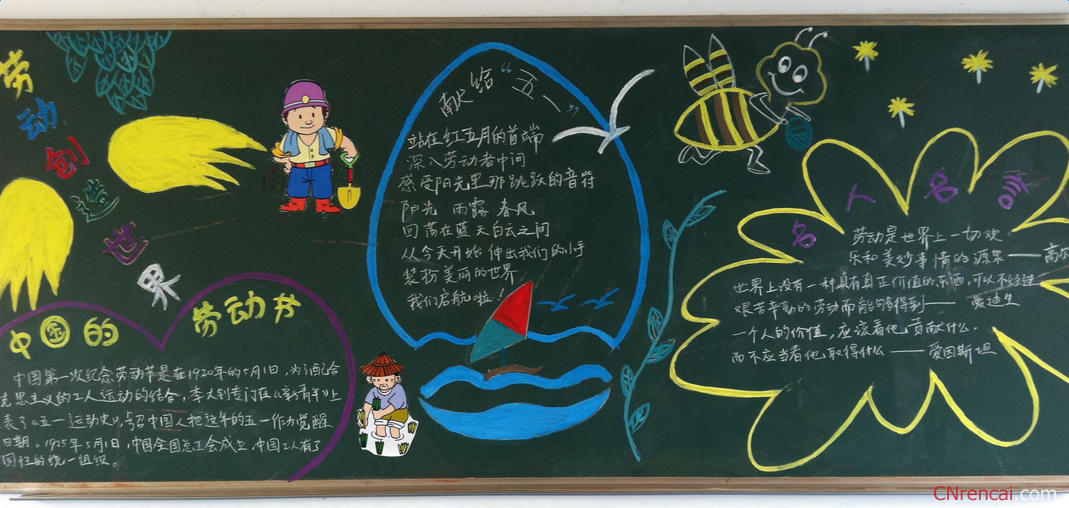 劳动创造世界
中国的
劳动节
中国第一次纪念劳动节是在1920年的5月1日,为了配合
克思主义的工人运动的结合,李大钊专门在《新青年》上
表了《五一运动史》,号召中国人把这年的五一作为觉醒
日期。1925年5月1日,中国全国总工会成立,中国工人有了
的统一组织。
献给“五一”
站在红五月的首端
深入劳动者中间
感受阳光里那跳跃的音符
阳光 雨露 春风
回荡在蓝天白云之间
从今天开始 伸出我们的小手
装扮美丽的世界
我们启航啦!
名人名言
劳动是世界上一切欢
乐和美妙事情的源泉——高尔
世界上没有一种具有真正价值的东西,可以不经过
艰苦辛勤的劳动而能够得到——爱迪生
一个人的价值,应该看他贡献什么,
而不应当看他取得什么——爱因斯坦
CNrencai.com